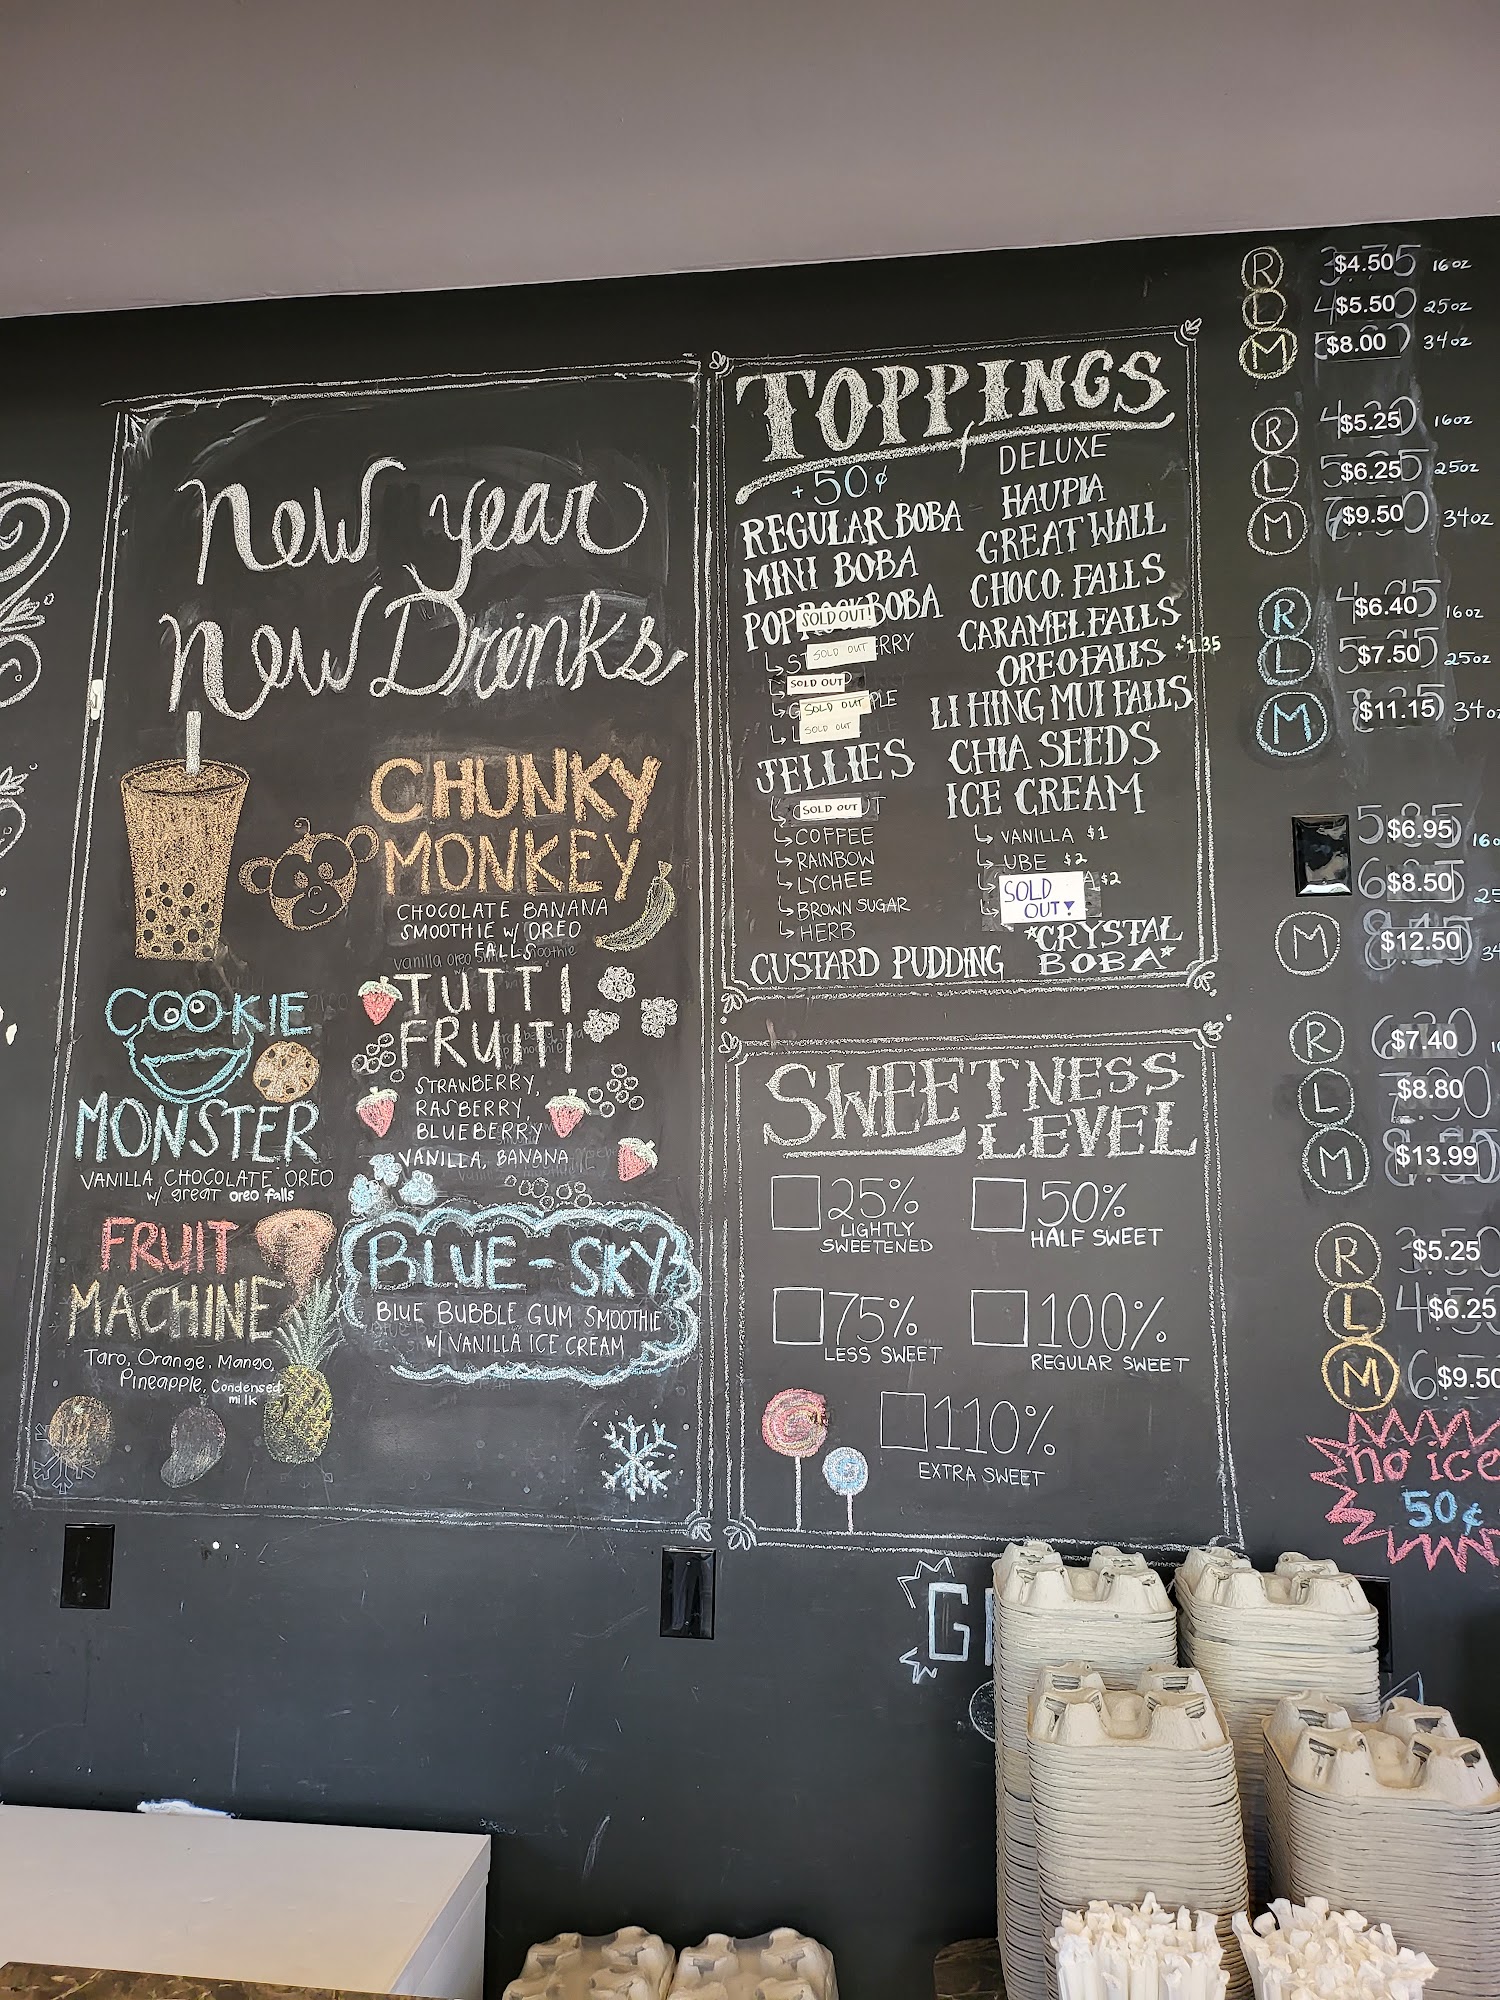 New year
New Drinks
CHUNKY
MONKEY
CHOCOLATE BANANA
SMOOTHIE W/ OREO
FALLS
COOKIE
MONSTER
VANILLA CHOCOLATE OREO
w/ great oreo falls
TUTTI
FRUITI
STRAWBERRY,
RASBERRY,
BLUEBERRY
VANILLA, BANANA
FRUIT
MACHINE
Taro, Orange, Mango,
Pineapple, Condensed
milk
BLUE-SKY
BLUE BUBBLE GUM SMOOTHIE
W/ VANILLA ICE CREAM
TOPPINGS
+50¢
REGULAR BOBA
MINI BOBA
POPROCK BOBA
SOLD OUT!
SOLD OUT
SOLD OUT
SOLD OUT
SOLD OUT
JELLIES
SOLD OUT
COFFEE
RAINBOW
LYCHEE
BROWN SUGAR
HERB
CUSTARD PUDDING
DELUXE
HAUPIA
GREAT WALL
CHOCO. FALLS
CARAMEL FALLS
OREO FALLS +1.35
LI HING MUI FALLS
CHIA SEEDS
ICE CREAM
VANILLA $1
UBE $2
A $2
SOLD
OUT!
*CRYSTAL
BOBA*
SWEETNESS
LEVEL
25%
LIGHTLY
SWEETENED
50%
HALF SWEET
75%
LESS SWEET
100%
REGULAR SWEET
110%
EXTRA SWEET
R $4.50 16oz
L $5.50 25oz
M $8.00 34oz
R $5.25 16oz
L $6.25 25oz
M $9.50 34oz
R $6.40 16oz
L $7.50 25oz
M $11.15 34oz
$6.95 16o
$8.50 25
M $12.50 34
R $7.40
L $8.80
M $13.99
R $5.25
L $6.25
M $9.50
no ice
50¢
G